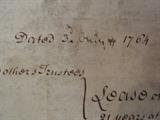 Dated 3d July 1764
others Trustees
Lease o
21 years